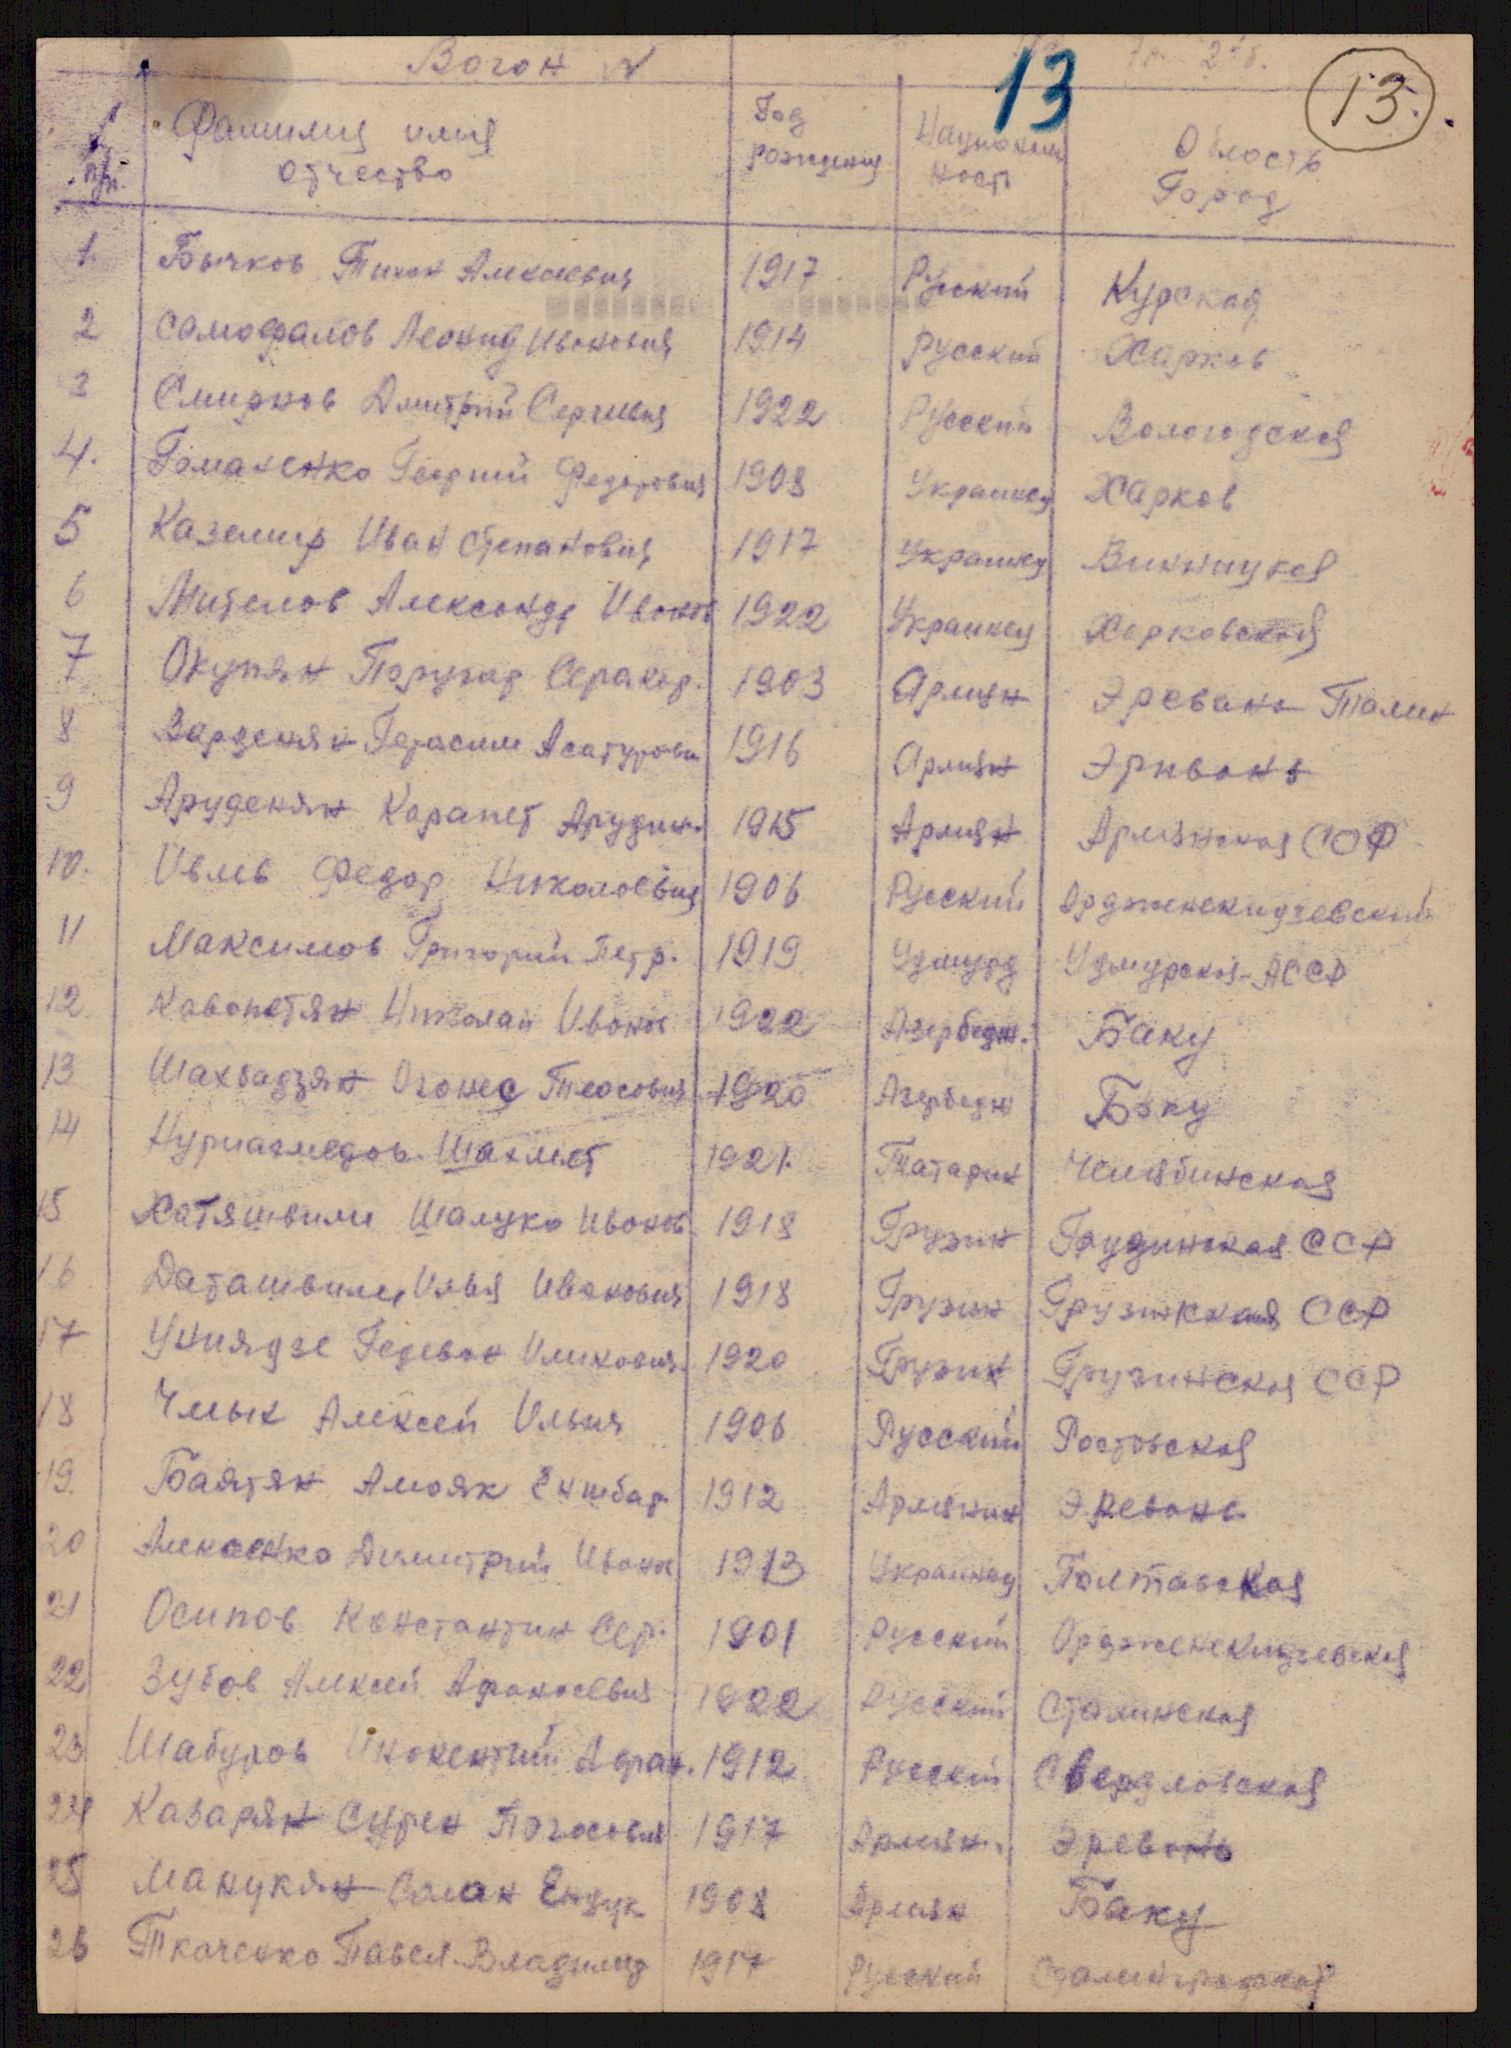 Вогон №
13
13.
№ п/п. Фамилия имя отчество Год рождения Национальность Область Город
1. Бычков Тихон Алексеевич 1917 Русский Курская
2 Самофалов Леонид Иванович 1914 Русский Харков
3 Смирнов Дмитрий Сергеевич 1922 Русский Вологодская
4. Гомаленко Георгий Федорович 1908 Украинец Харков
5 Каземир Иван Степанович 1917 Украинец Винницкая
6 Мителов Александр Иванов 1922 Украинец Харковская
7 Окупян Паругар 1903 Армян Эревань Талин
8 Варденян Герасим Асатурови 1916 Армян Эривань
9 Аруденян Карапет Арудин. 1915 Армян Армянская ССР
10. Ивлев Федор Николаевич 1906 Русский Орджененкидзевский
11 Максимов Григорий Петр. 1919 Удмурд Удмурская АССР
12 Кавопетян Николай Иванов 1922 Азербедж. Баку
13 Шахвадзян Огонес 1920 Азербедж Баку
14 Нуриагмедов Шахмет 1921. Татарин Челябинская
15 Хатяшвили Шалуко Иванов 1918 Грузин Грузинская ССР
16 Даташвили Илья Иванович 1918 Грузин Грузинская ССР
17 Униядзе Гедеван Иликович 1920 Грузин Грузинская ССР
18 Чмых Алексей Ильич 1906 Русский Ростовская
19. Баятян Амаяк Енибар. 1912 Армянин Эревань
20 Алексенко Димитрий Иванов 1913 Украинец Полтавская
21 Осипов Константин Сер. 1901 Русский Орджененкидзевская
22 Зубов Алексей Афанасевич 1922 Русский Сталинская
23 Шабуров Инокентий Афан. 1912 Русский Свердловская
24 Казарян Сурен Погосович 1917 Армян. Эревань
25 Манукян Солак 1908 Армян Баку
26 Ткаченко Павел Владимир 1917 Русский Сталинградская